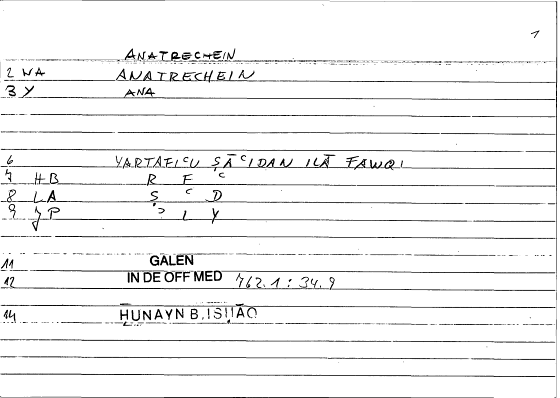 1
ANATRECHEIN
2 WA ANATRECHEIN
3 Y ANA
6 YARTAFIʿU ṢĀʿIDAN ILĀ FAWQI
7 HB R F ʿ
8 LA Ṣ ʿ D
9 JP ʾ L Y
11 GALEN
12 IN DE OFF MED 762.1 : 34.9
14 ḤUNAYN B. ISḤĀQ